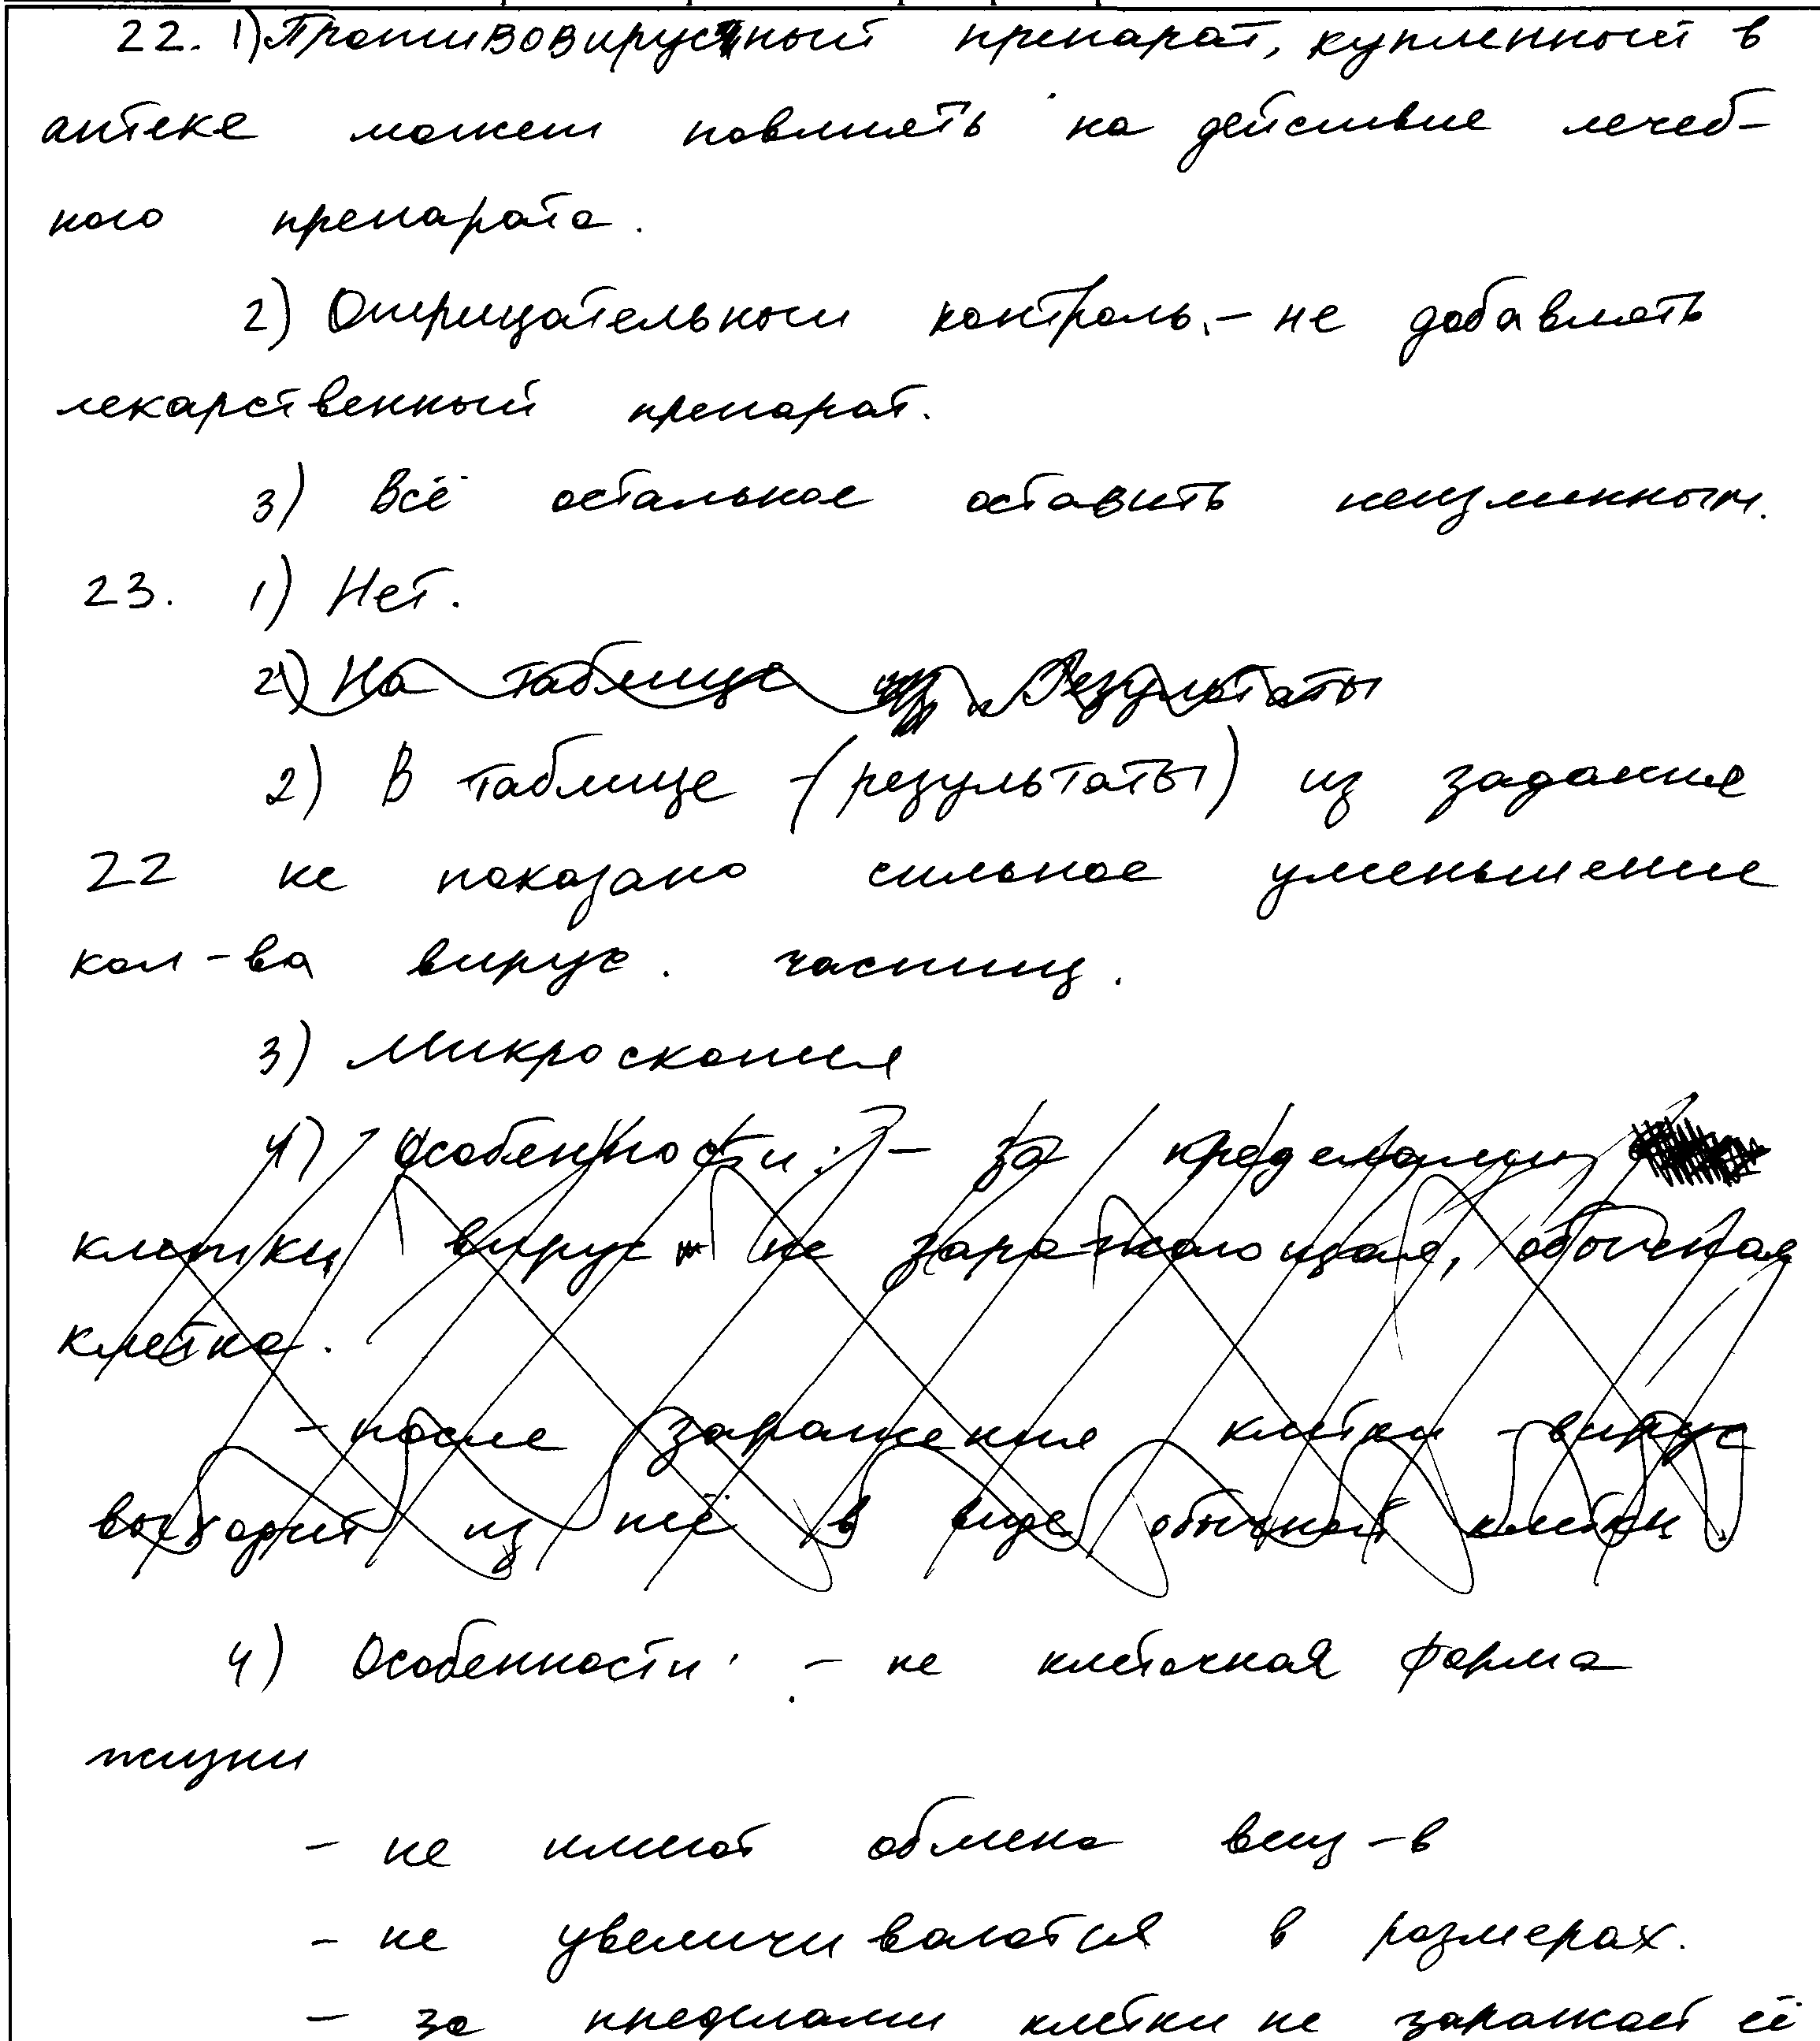 22. 1) Противовирусный препарат, купленный в
аптеке может повлиять на действие лечеб-
ного препарата.
2) Отрицательный контроль - не добавлять
лекарственный препарат.
3) Всё остальное оставить неизменным.
23. 1) Нет.
2) На таблице Результаты
2) В таблице (результаты) из задания
22 не показано сильное уменьшение
кол-ва вирус. частиц.
3) Микроскопия
4) Особенности: - за пределами
клетки вирус не заражающая, обычная
клетка.
- после заражения клетки - вирус
выходит из неё в виде обычной клетки
4) Особенности: - не клеточная форма
жизни
- не имеют обмена вещ-в
- не увеличиваются в размерах.
- за пределами клетки не заражает её